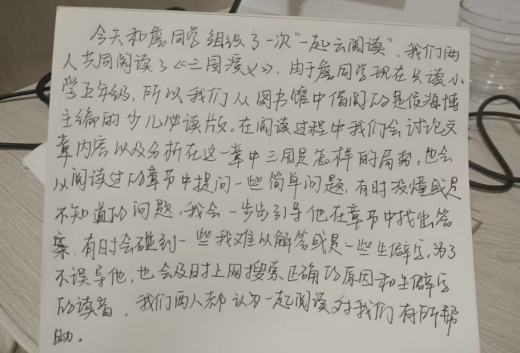 今天和詹同学组织了一次"一起云阅读",我们两
人共同阅读了《三国演义》,由于詹同学现在只读小
学五年级,所以我们从图书馆中借阅的是侯海博
主编的少儿必读版。在阅读过程中我们会讨论文
章内容以及分析在这一章中三国是怎样的局面,也会
从阅读过的章节中提问一些简单问题,有时没懂或是
不知道的问题,我会一步步引导他在章节中找出答
案,有时会碰到一些我难以解答或是一些生僻字,为了
不误导他,也会及时上网搜索正确的原因和生僻字
的读音,我们两人都认为一起阅读对我们有所帮
助。